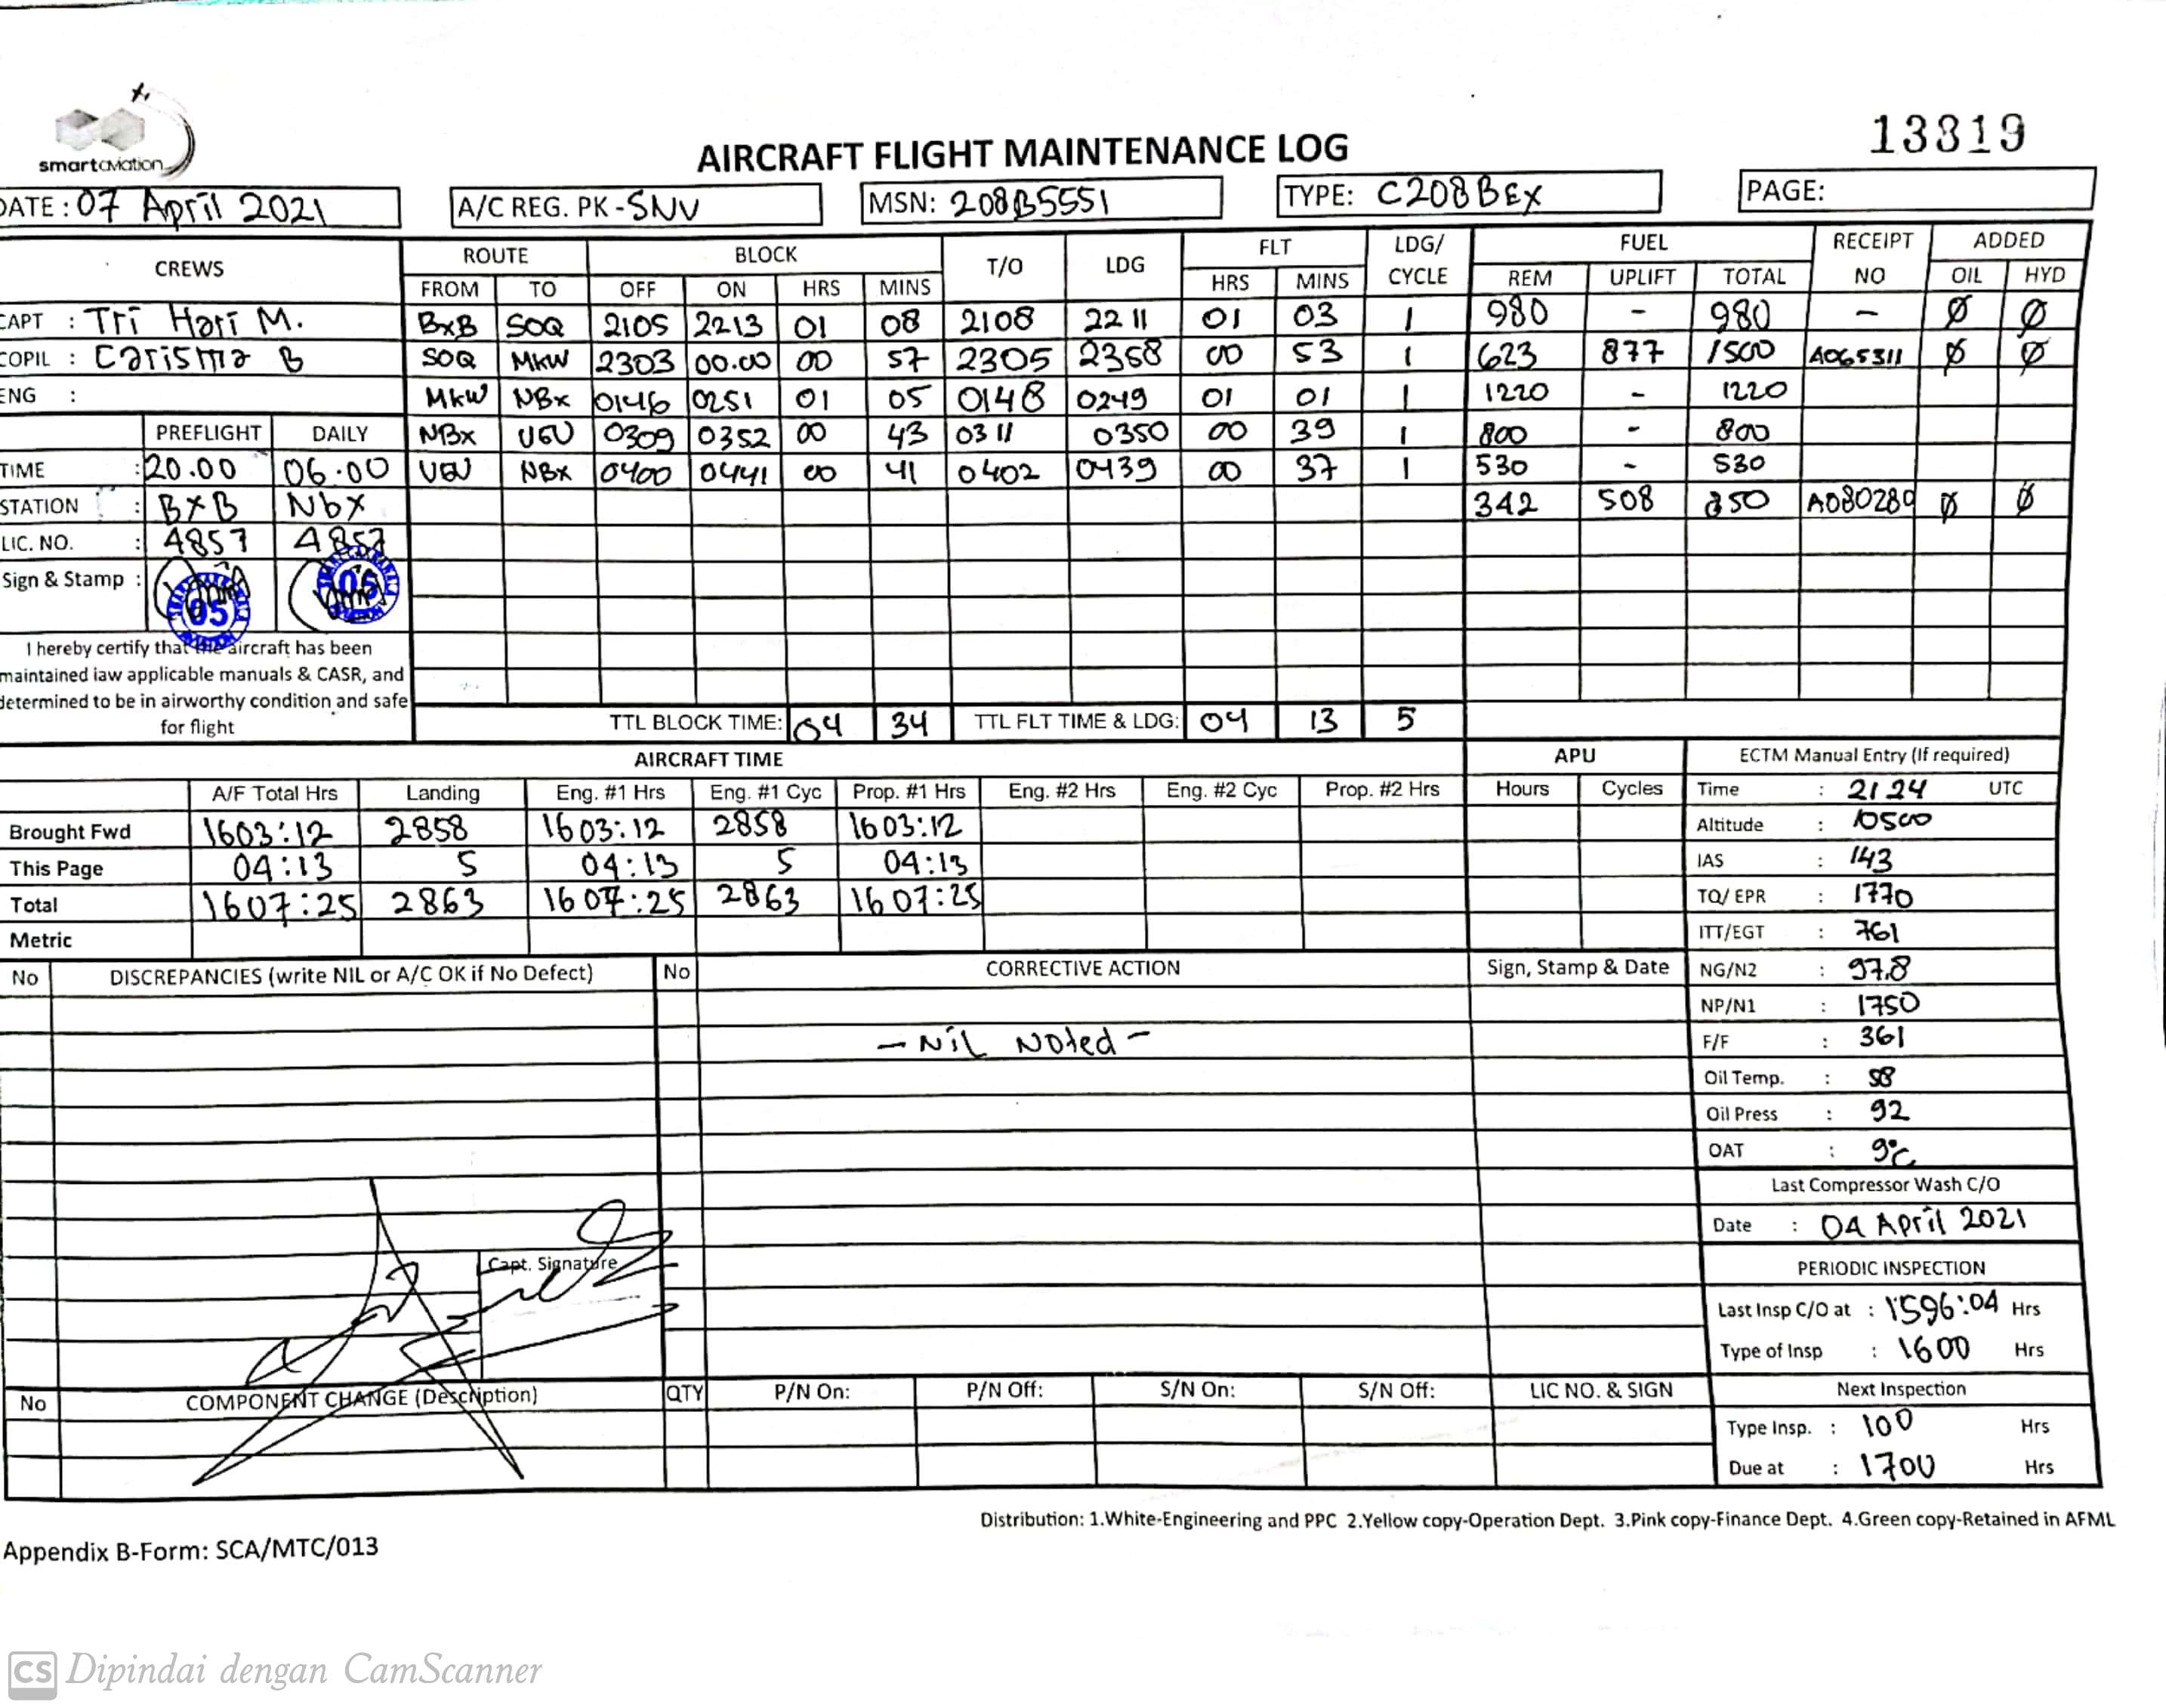 smartaviation
AIRCRAFT FLIGHT MAINTENANCE LOG
13819
DATE : 07 April 2021
A/C REG. PK - SNV
MSN: 208B5551
TYPE: C208BEX
PAGE:
CREWS ROUTE BLOCK T/O LDG FLT LDG/ CYCLE FUEL RECEIPT NO ADDED
FROM TO OFF ON HRS MINS HRS MINS REM UPLIFT TOTAL OIL HYD
CAPT : Tri Hari M. BxB SOQ 2105 2213 01 08 2108 2211 01 03 1 980 - 980 - Ø Ø
COPIL : Carisma B SOQ MKW 2303 00.00 00 57 2305 2358 00 53 1 623 877 1500 A065311 Ø Ø
ENG : MKW NBx 0146 0251 01 05 0148 0249 01 01 1 1220 - 1220
PREFLIGHT DAILY NBx UGU 0309 0352 00 43 0311 0350 00 39 1 800 - 800
TIME : 20.00 06.00 UGU NBx 0400 0441 00 41 0402 0439 00 37 1 530 - 530
STATION : BXB NbX 342 508 850 A080280 Ø Ø
LIC. NO. : 4857 4857
Sign & Stamp : 05 05
I hereby certify that the aircraft has been
maintained iaw applicable manuals & CASR, and
determined to be in airworthy condition and safe
for flight
TTL BLOCK TIME: 04 34 TTL FLT TIME & LDG: 04 13 5
AIRCRAFT TIME APU ECTM Manual Entry (If required)
A/F Total Hrs Landing Eng. #1 Hrs Eng. #1 Cyc Prop. #1 Hrs Eng. #2 Hrs Eng. #2 Cyc Prop. #2 Hrs Hours Cycles Time : 2124 UTC
Brought Fwd 1603:12 2858 1603:12 2858 1603:12 Altitude : 10500
This Page 04:13 5 04:13 5 04:13 IAS : 143
Total 1607:25 2863 1607:25 2863 1607:25 TQ/ EPR : 1770
Metric ITT/EGT : 761
No DISCREPANCIES (write NIL or A/C OK if No Defect) No CORRECTIVE ACTION Sign, Stamp & Date NG/N2 : 97.8
NP/N1 : 1750
- Nil Noted - F/F : 361
Oil Temp. : 58
Oil Press : 92
OAT : 9°C
Last Compressor Wash C/O
Date : 04 April 2021
Capt. Signature
PERIODIC INSPECTION
Last Insp C/O at : 1596:04 Hrs
Type of Insp : 1600 Hrs
No COMPONENT CHANGE (Description) QTY P/N On: P/N Off: S/N On: S/N Off: LIC NO. & SIGN Next Inspection
Type Insp. : 100 Hrs
Due at : 1700 Hrs
Distribution: 1.White-Engineering and PPC 2.Yellow copy-Operation Dept. 3.Pink copy-Finance Dept. 4.Green copy-Retained in AFML
Appendix B-Form: SCA/MTC/013
CS Dipindai dengan CamScanner